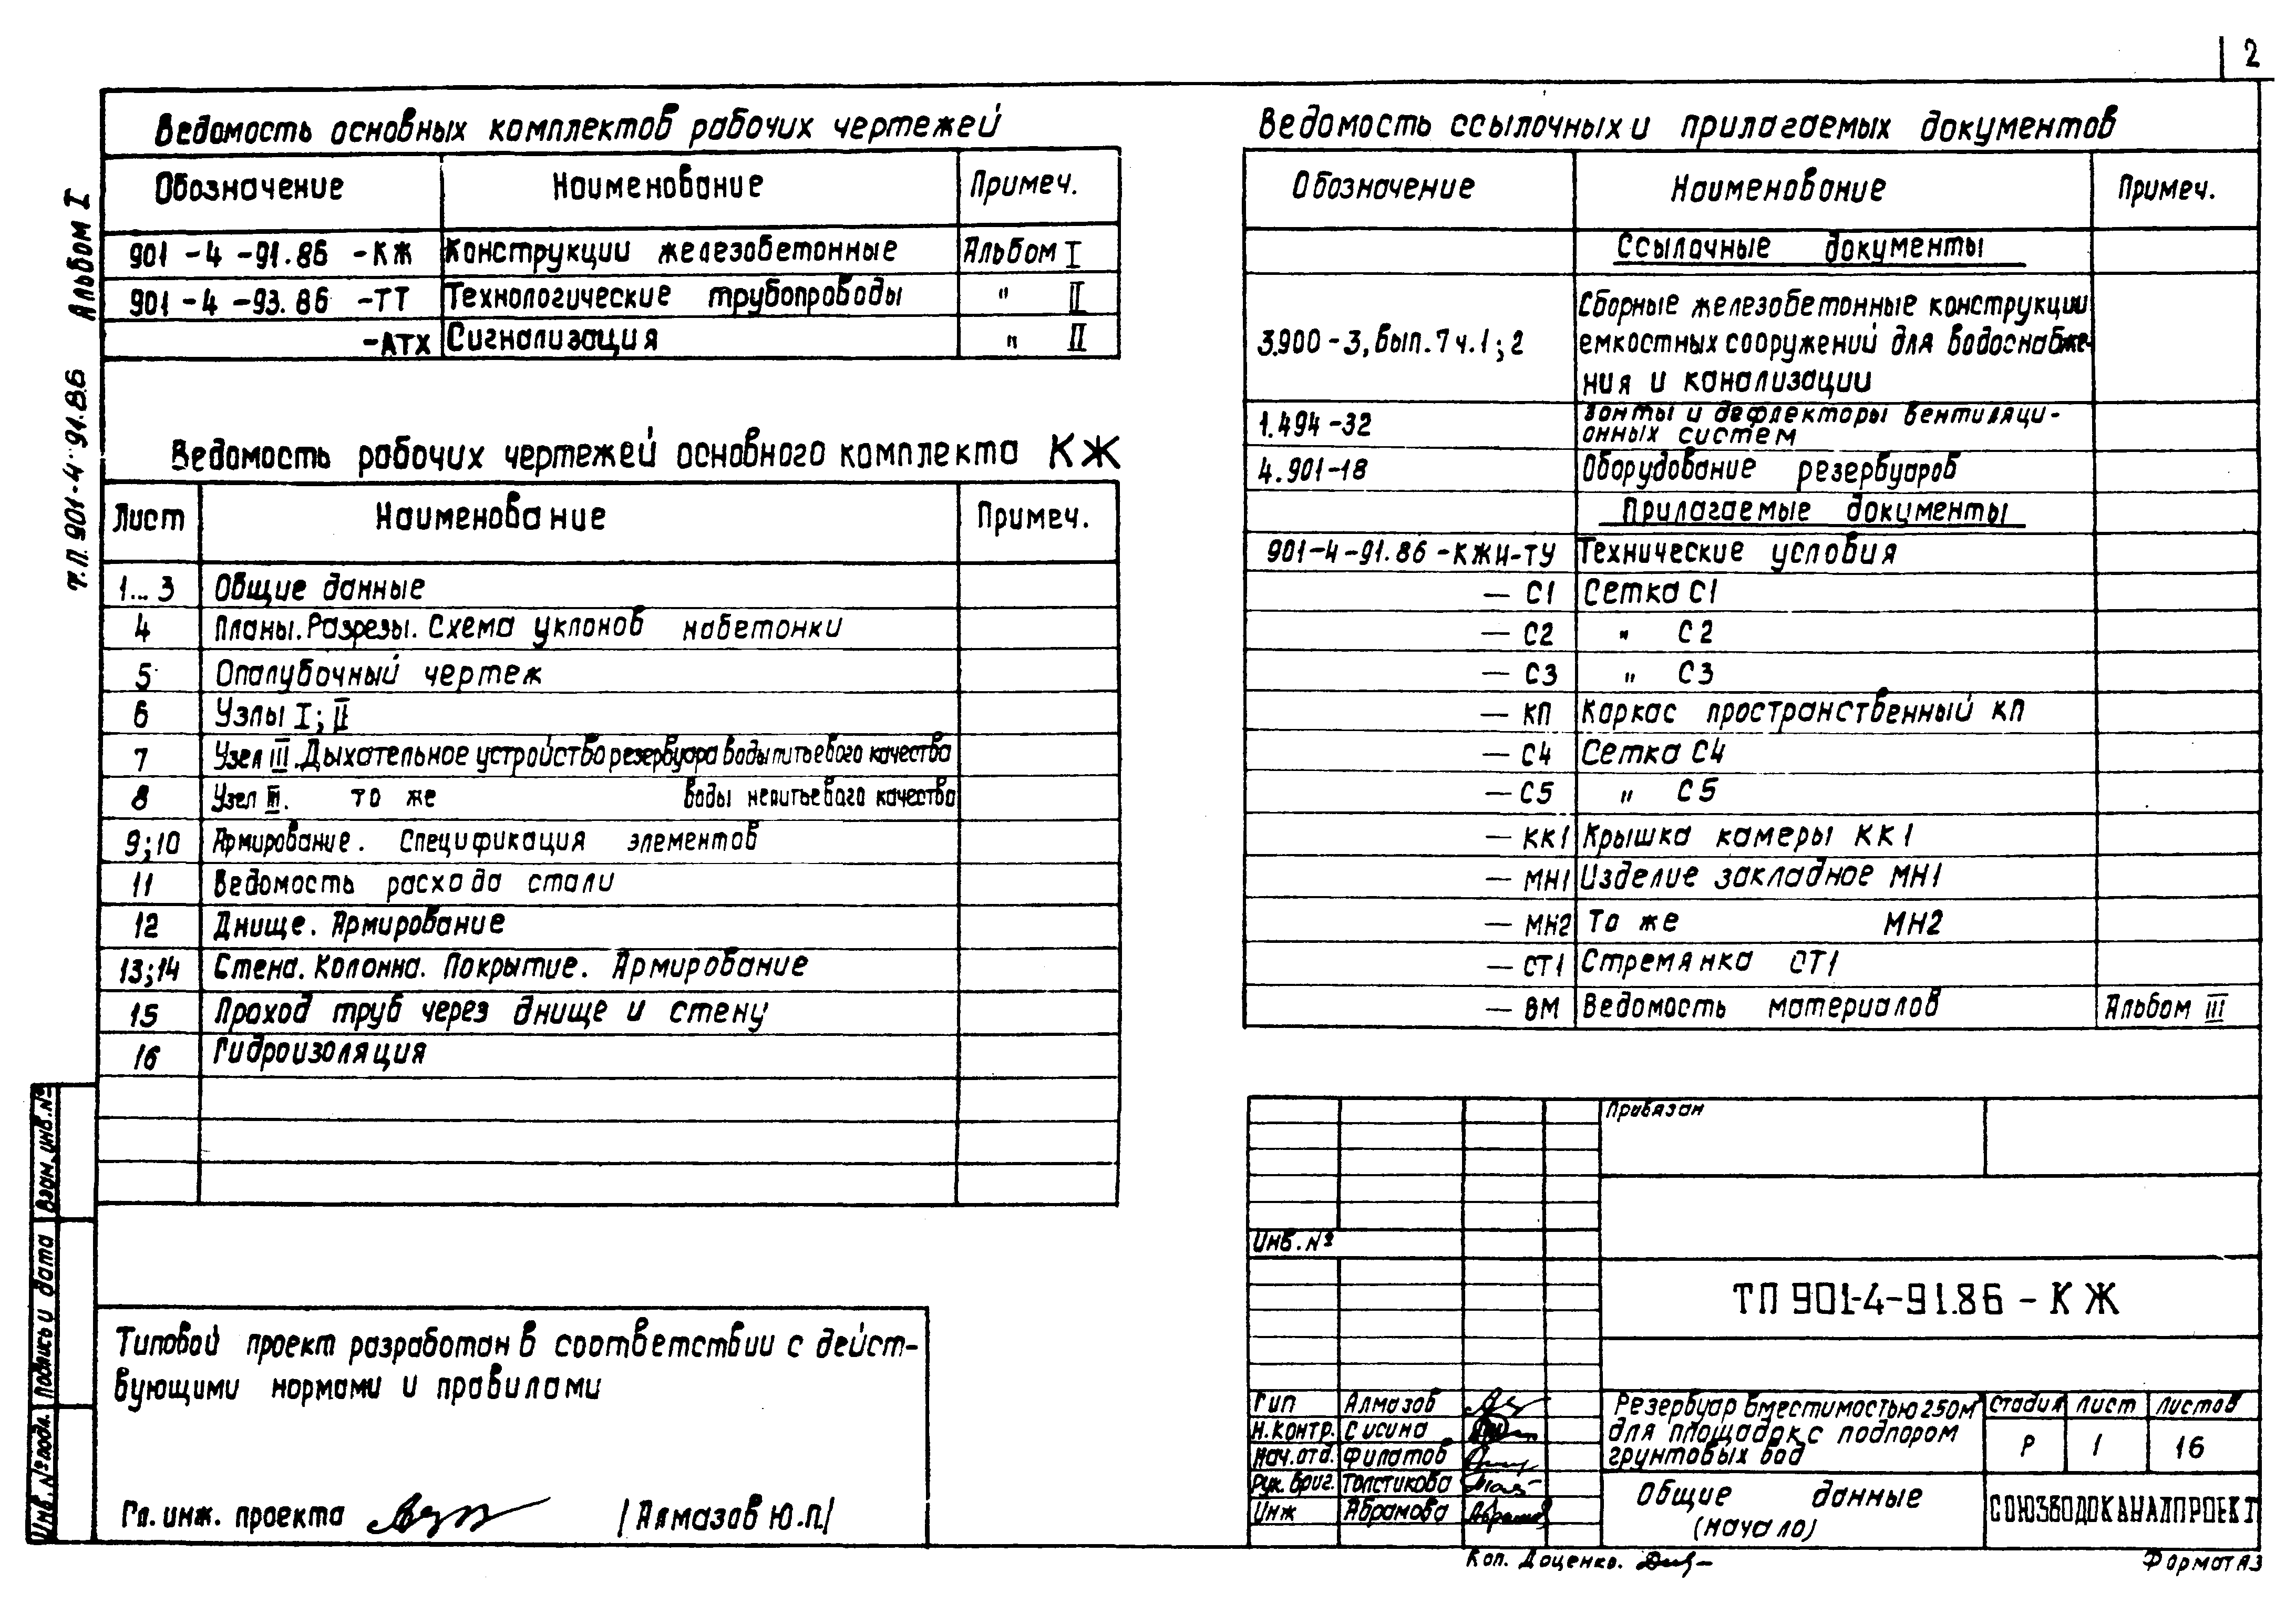 2
Ведомость основных комплектов рабочих чертежей
Обозначение Наименование Примеч.
901-4-91.86 -КЖ Конструкции железобетонные Альбом I
901-4-93.86 -ТТ Технологические трубопроводы " II
-АТХ Сигнализация " II
Ведомость рабочих чертежей основного комплекта КЖ
Лист Наименование Примеч.
1...3 Общие данные
4 Планы. Разрезы. Схема уклонов набетонки
5 Опалубочный чертеж
6 Узлы I; II
7 Узел III. Дыхательное устройство резервуара воды питьевого качества
8 Узел III. то же воды непитьевого качества
9;10 Армирование. Спецификация элементов
11 Ведомость расхода стали
12 Днище. Армирование
13;14 Стена. Колонна. Покрытие. Армирование
15 Проход труб через днище и стену
16 Гидроизоляция
Типовой проект разработан в соответствии с дейст-
вующими нормами и правилами
Гл. инж. проекта /Алмазов Ю.П./
Ведомость ссылочных и прилагаемых документов
Обозначение Наименование Примеч.
Ссылочные документы
Сборные железобетонные конструкции
3.900-3, вып. 7 ч.1; 2 емкостных сооружений для водоснабже-
ния и канализации
1.494-32 Зонты и дефлекторы вентиляци-
онных систем
4.901-18 Оборудование резервуаров
Прилагаемые документы
901-4-91.86-КЖИ-ТУ Технические условия
— С1 Сетка С1
— С2 " С2
— С3 " С3
— КП Каркас пространственный КП
— С4 Сетка С4
— С5 " С5
— КК1 Крышка камеры КК1
— МН1 Изделие закладное МН1
— МН2 То же МН2
— СТ1 Стремянка СТ1
— ВМ Ведомость материалов Альбом III
Привязан
Инв. №
ТП 901-4-91.86-КЖ
Гип Алмазов
Н.контр. Сисина
Нач.отд. Филатов
Рук. бриг. Толстикова
Инж Абрамова
Резервуар вместимостью 250м³
для площадок с подпором
грунтовых вод
Стадия Лист Листов
Р 1 16
Общие данные
(начало)
СОЮЗВОДОКАНАЛПРОЕКТ
Коп. Доценко.
Формат А3
т.п. 901-4-91.86 Альбом I
Инв. № подл. Подпись и дата Взам. инв. №